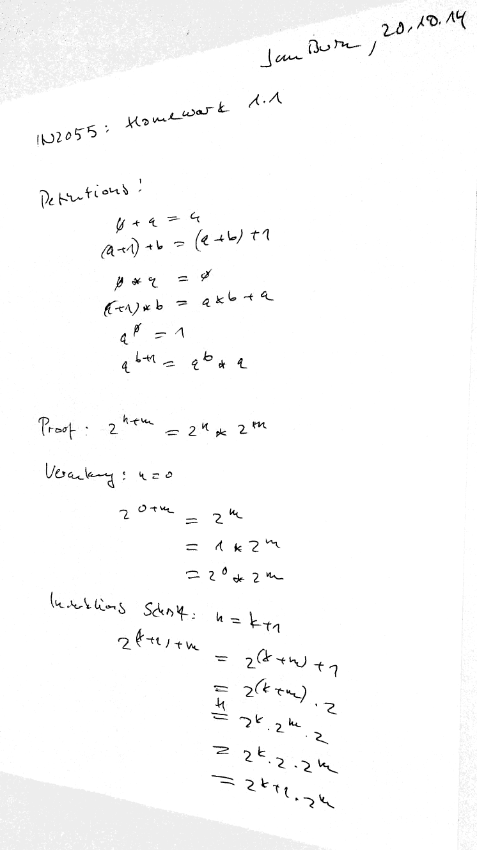 Jan Burn, 20.10.14
IN2055: Homework 1.1
Definitions:
0 + a = a
(a+1) + b = (a+b) + 1
0 * a = 0
(a+1) * b = a * b + a
a^0 = 1
a^{b+1} = a^b * a
Proof: 2^{n+m} = 2^n * 2^m
Verankerung: n=0
2^{0+m} = 2^m
= 1 * 2^m
= 2^0 * 2^m
Induktions Schritt: n = k+1
2^{(k+1)+m} = 2^{(k+m)+1}
= 2^{(k+m)} · 2
IH
= 2^k · 2^m · 2
= 2^k · 2 · 2^m
= 2^{k+1} · 2^m